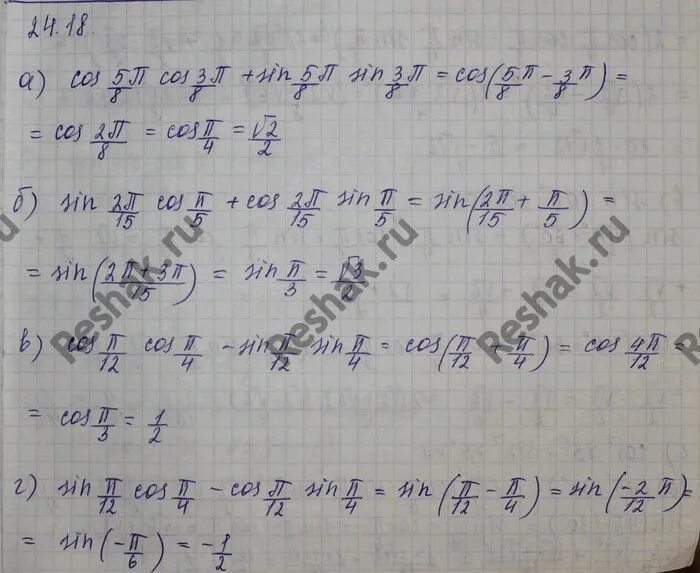 24.18.
а) cos 5/8 π cos 3/8 π + sin 5/8 π sin 3/8 π = cos(5/8 π − 3/8 π) =
= cos 2π/8 = cos π/4 = √2/2
б) sin 2π/15 cos π/5 + cos 2π/15 sin π/5 = sin(2π/15 + π/5) =
= sin(2π+3π/15) = sin π/3 = √3/2
в) cos π/12 cos π/4 − sin π/12 sin π/4 = cos(π/12 + π/4) = cos 4π/12 =
= cos π/3 = 1/2
г) sin π/12 cos π/4 − cos π/12 sin π/4 = sin(π/12 − π/4) = sin(−2/12 π) =
= sin(−π/6) = −1/2
Reshak.ru
Reshak.ru
Reshak.ru